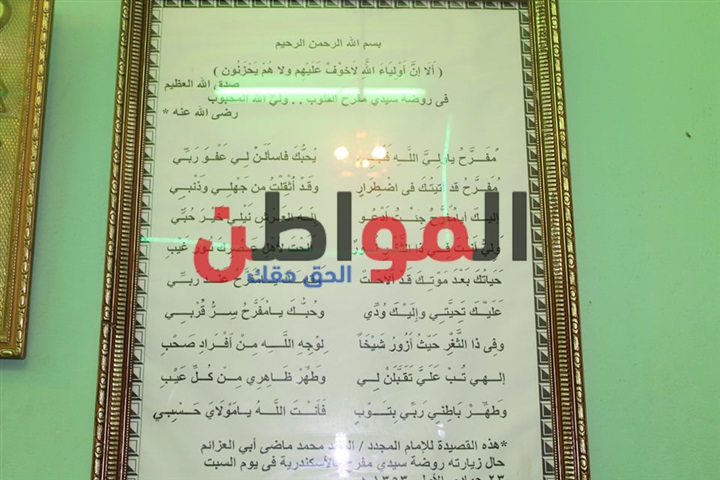 بسم الله الرحمن الرحيم
( أَلَا إِنَّ أَوْلِيَاءَ اللَّهِ لَاخَوْفٌ عَلَيْهِمْ ولا هُمْ يَحْزَنُون )
صدق الله العظيم
فى روضة سيدي مفرح القلوب . . ولى الله المحبوب
رضى الله عنه *
مُفَـرَّحُ ياوَلِـيَّ اللَّـهِ يُحِبُّـكَ فاسأَلَـنْ لِـي عَفـوَ رَبِّـي
مُفـرَّحُ قَد أتيتُـكَ فى اضْطِـرَارٍ وَقَـد أَثْقَلْـتُ مِـن جَهْلِـي وذَنْبِـي
إليـكَ جِئْـتُ أَدْعُـو إلـهَ العَـرْشِ نَيْلِـي خَيْـرَ حُبِّـي
المواطن
الحق حقك
حَيَاتُـكَ بَعْـدَ مَوْتِـكَ قَـد رَبِّـي
عَلَيْـكَ تَحِيَّتِـي وإِلَيْـكَ وُدِّي وَحُبُّـكَ يـامُفَـرَّحُ سِـرُّ قُرْبِـي
وفِى ذا الثَّغْـرِ حَيْـثُ أزُورُ شَيْخًـا لِوَجْـهِ اللَّـهِ مِـنْ أَفْـرَادِ صَحْـبِ
إلـهِـي تُـبْ عَلَـيَّ تَقَبَّلَـنْ لِـي وطَهِّـرْ ظَاهِـرِي مِـنْ كُـلِّ عَيْـبِ
وَطَهِّـرْ بَاطِنِـي رَبِّـي بِتَـوْبٍ فَـأَنْـتَ اللَّـهُ يـامَـوْلايَ حَسْـبِـي
*هذه القصيدة للإمام المجدد / السيد محمد ماضى أبي العزائم
حال زيارته روضة سيدي مفرح بالأسكندرية فى يوم السبت